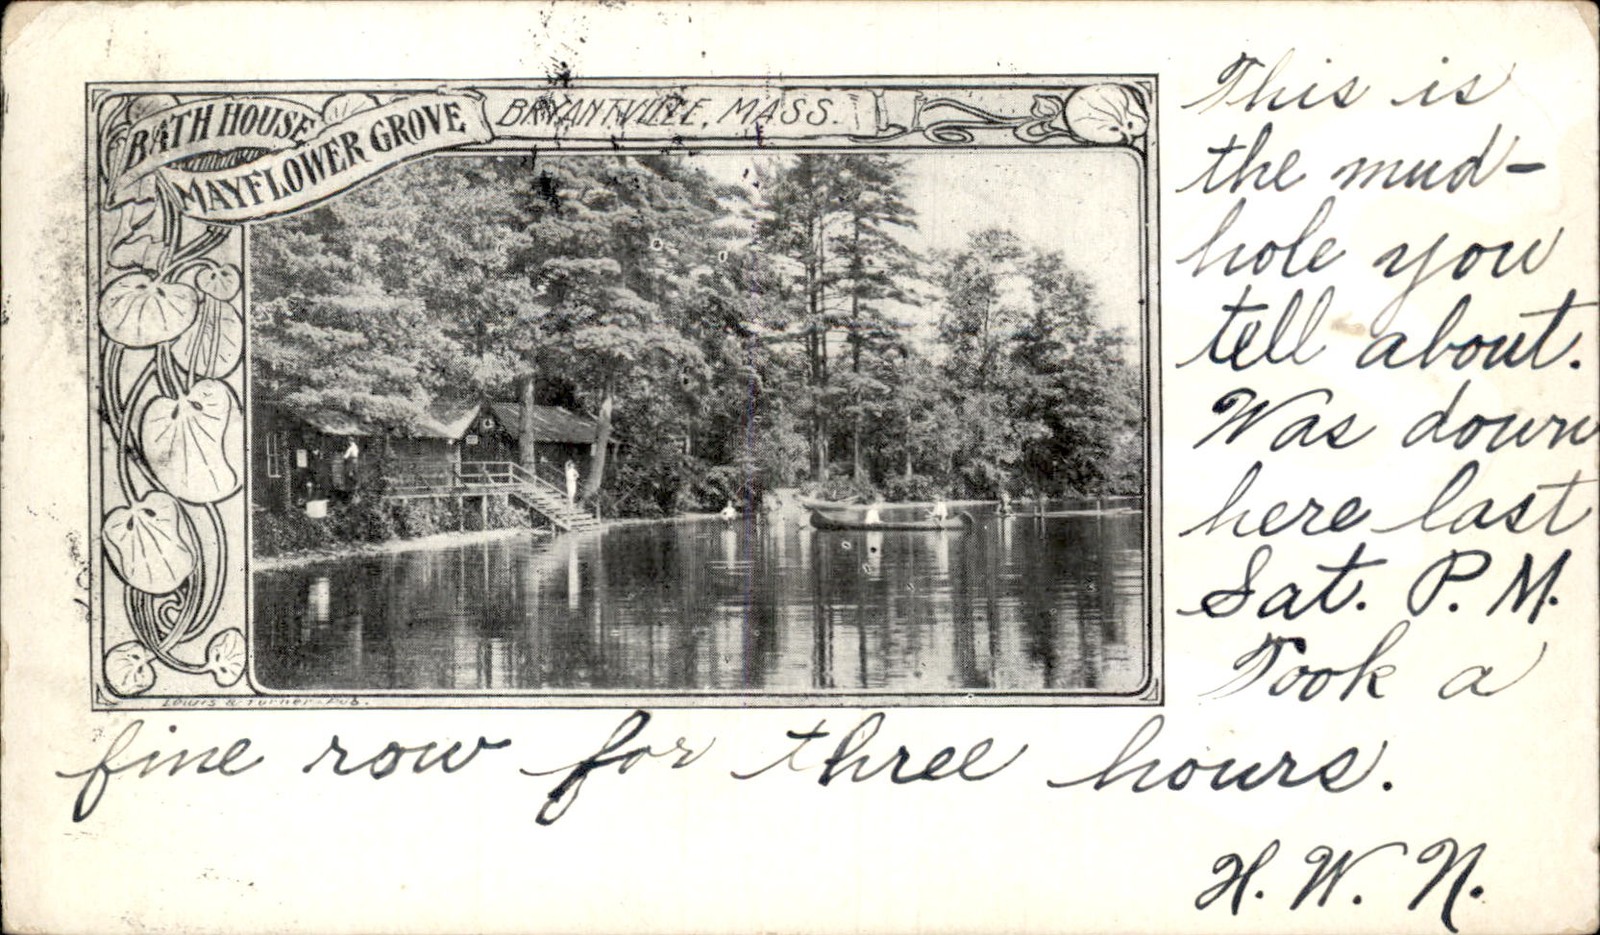 BATH HOUSE
MAYFLOWER GROVE
BRYANTVILLE, MASS.
Lewis & Turner-Pub.
This is
the mud-
hole you
tell about.
Was down
here last
Sat. P. M.
Took a
fine row for three hours.
H. W. N.